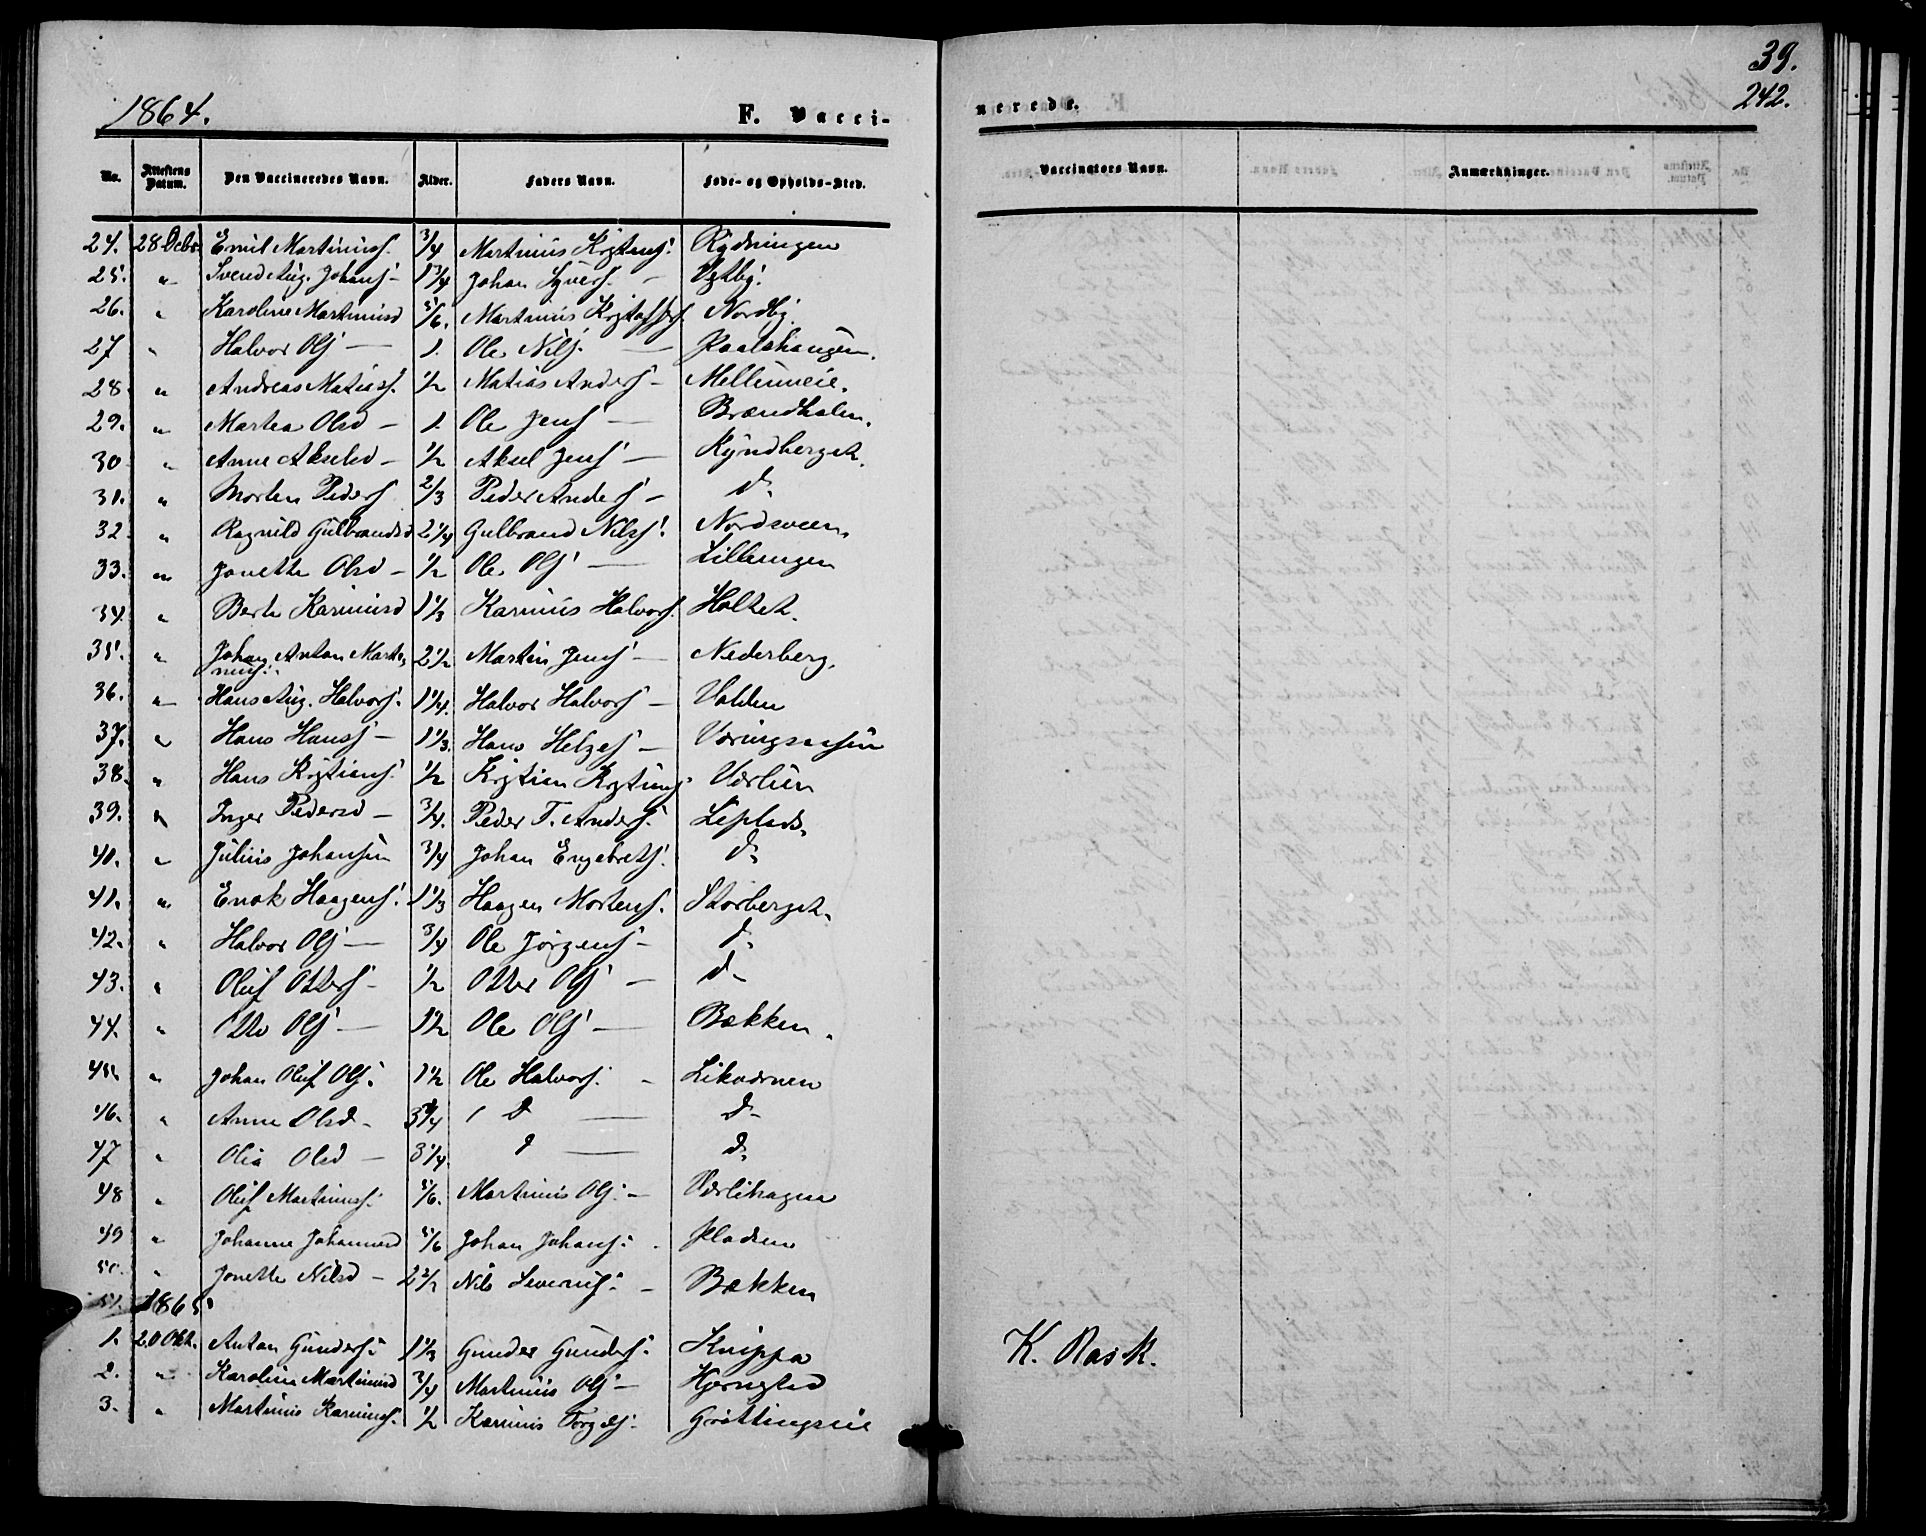 39.
1864. F. Vacci- nerede. 242.
No. Attestens Datum. Den Vaccineredes Navn. Alder. Faders Navn. Føde- og Opholds-Sted. Vaccinators Navn. Anmærkninger.
24. 28 Octbr Emil Martinuss. 3/4 Martinus Kristens. Rydningen
25. " Svend Aug. Johans. - 1 3/4 Johan Syvers. - Vestby.
26. " Karoline Martinusd 5/6. Martinus Kristoffers. Nordby.
27 " Halvor Ols. — 1. Ole Nils. — Paalshaugen.
28 " Andreas Matiass. 1/2 Matias Anders. - Mellumeie.
29. " Martea Olsd - 1. Ole Jens. — Brændholen.
30 " Anne Akselsd - 1/2 Aksel Jens. — Kyndberget.
31. " Morten Peders. 2/3 Peder Anders. - d.
32. " Ragnild Gulbrandsd 2 1/4 Gulbrand Nilss. Nordsveen.
33. " Jonette Olsd - 1/2 Ole Ols. — Lilleengen
34. " Berte Karinusd 1 1/3 Karinus Halvors. Holtet.
35. " Johan Anton Marti-
nus. 2 1/2 Martin Jens. — Nederberg.
36. " Hans Aug. Halvors. 1 1/4. Halvor Halvors. — Volden
37. " Hans Hanss. - 1 1/3. Hans Helges. — Væringsaasen
38. " Hans Kristians. 1/2 Kristian Kristians. Værlien
39. " Inger Pedersd - 3/4. Peder T. Anders. Lieplads.
40. " Julius Johansen 3/4 Johan Engebrets. d.
41. " Enok Haagens. 1 1/3 Haagen Mortens. Storberget.
42. " Halvor Ols. — 3/4 Ole Jørgens. - d.
43. " Oluf Otters. - 1/2 Otter Ols. — d.
44. " Otto Ols. — 1 1/2 Ole Ols. — Bækken.
45. " Johan Oluf Ols. 1 1/2 Ole Halvors. - Likværnen
46. " Anne Olsd - 3 3/4 d — d.
47 " Olia Olsd — 3 1/4. d — d.
48 " Oluf Martinuss. 5/6. Martinus Ols. — Værlihagen
49 " Johanne Johannesd 5/6 Johan Johans. - Pladsen
50. " Jonette Nilsd - 2 1/2 Nils Severins. - Bækken
51. 1865.
1. 20 Okt. Anton Gunders. 1 1/3 Gunder Gunders. Knippa K. Rask.
2. " Karoline Martinusd 3/4 Martinus Ols. — Hjernstad
3. " Martinus Karinuss. 1/2 Karinus Torgels. Grøttingseie